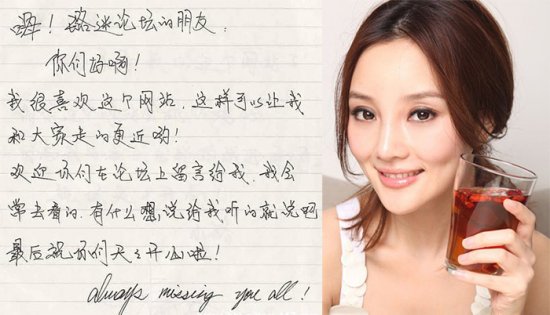 ！璐迷论坛的朋友：
你们好啊！
我很喜欢这个网站，这样可以让我
和大家走的更近哟！
欢迎你们在论坛上留言给我，我会
常去看的，有什么想说给我听的就说吧
最后祝你们天々开心啦！
always missing you all!